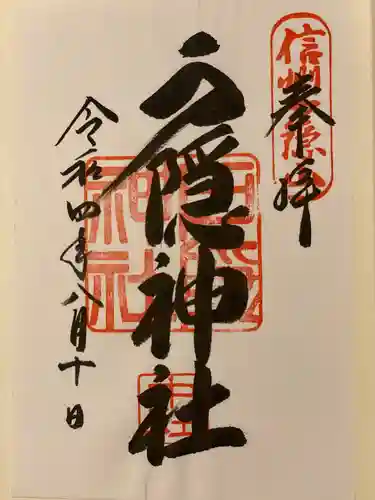 奉拝
信州戸隠
戸隠神社
令和四年八月十日